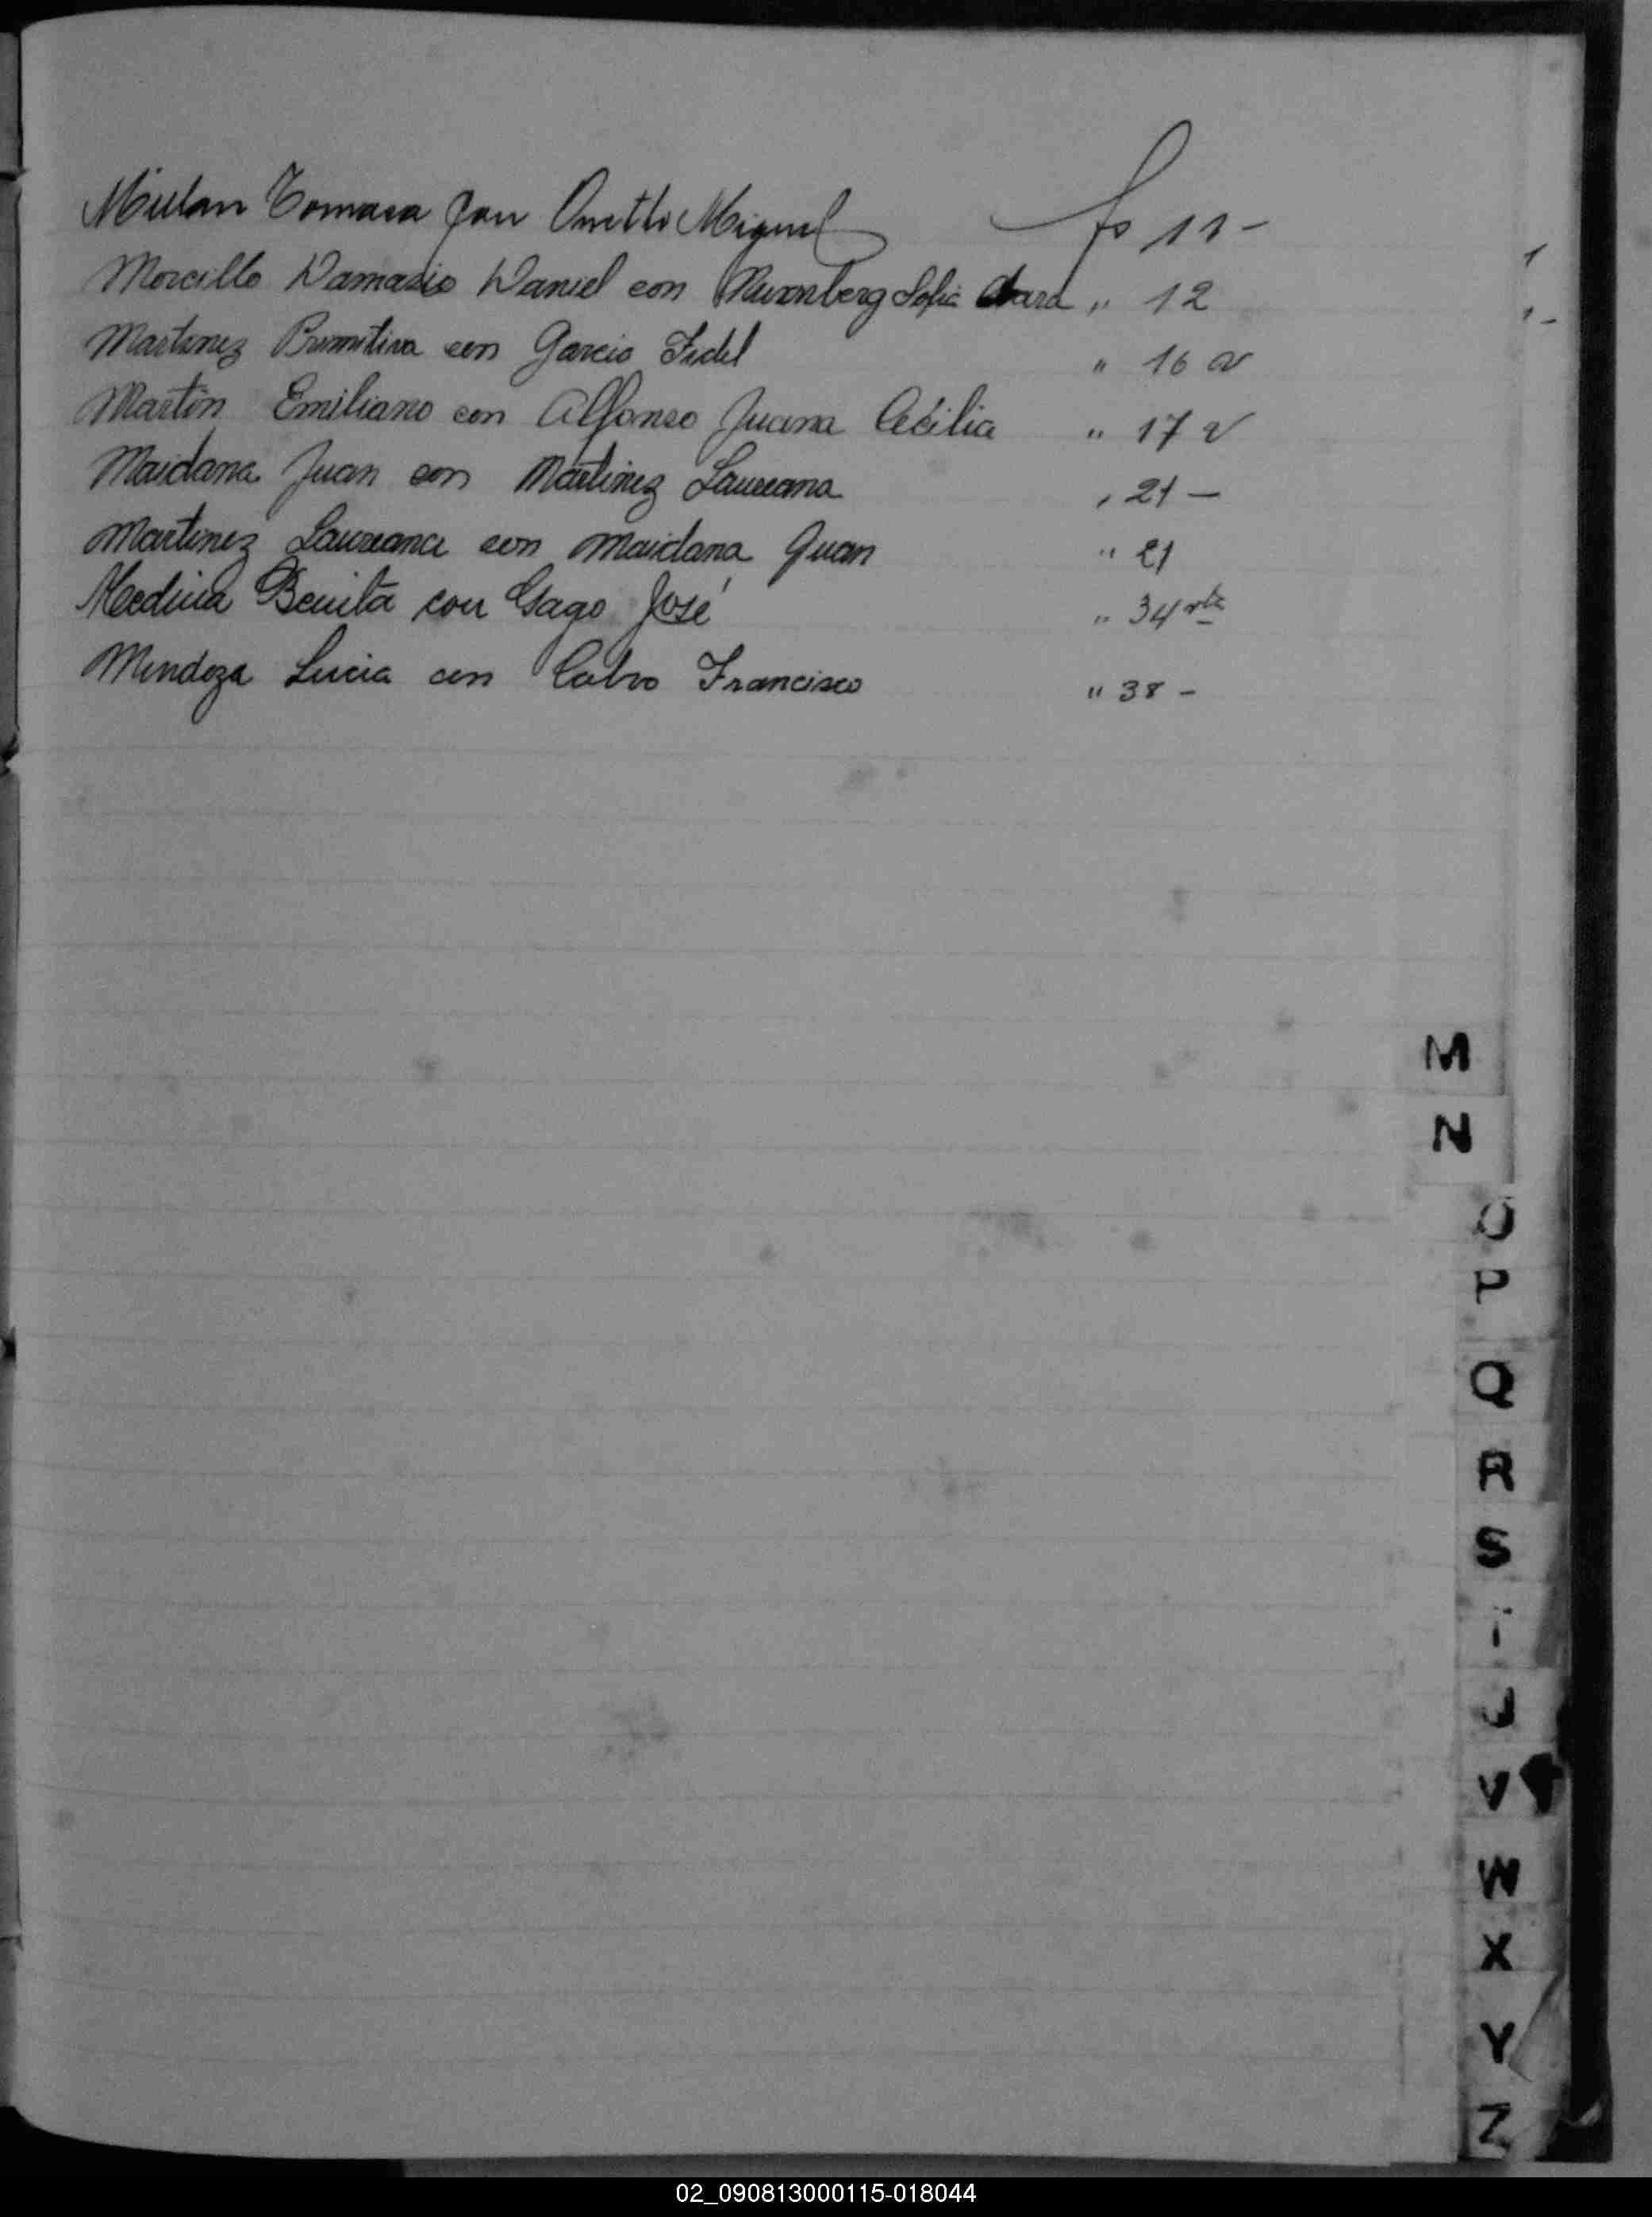 Milan Tomasa con Onetto Miguel fo 11 -
Morcillo Damasio Daniel con Sofia Clara " 12
Martinez Primitiva con Garcia Fidel " 16 v
Martin Emiliano con Alfonso Juana Cecilia " 17 v
Maidana Juan con Martinez Laureana , 21 —
Martinez Laureana con Maidana Juan " 21
Medina Benita con Gago José " 34 vta
Mendoza Lucia con Calvo Francisco " 38 -
M
N
O
P
Q
R
S
T
U
V
W
X
Y
Z
02_090813000115-018044